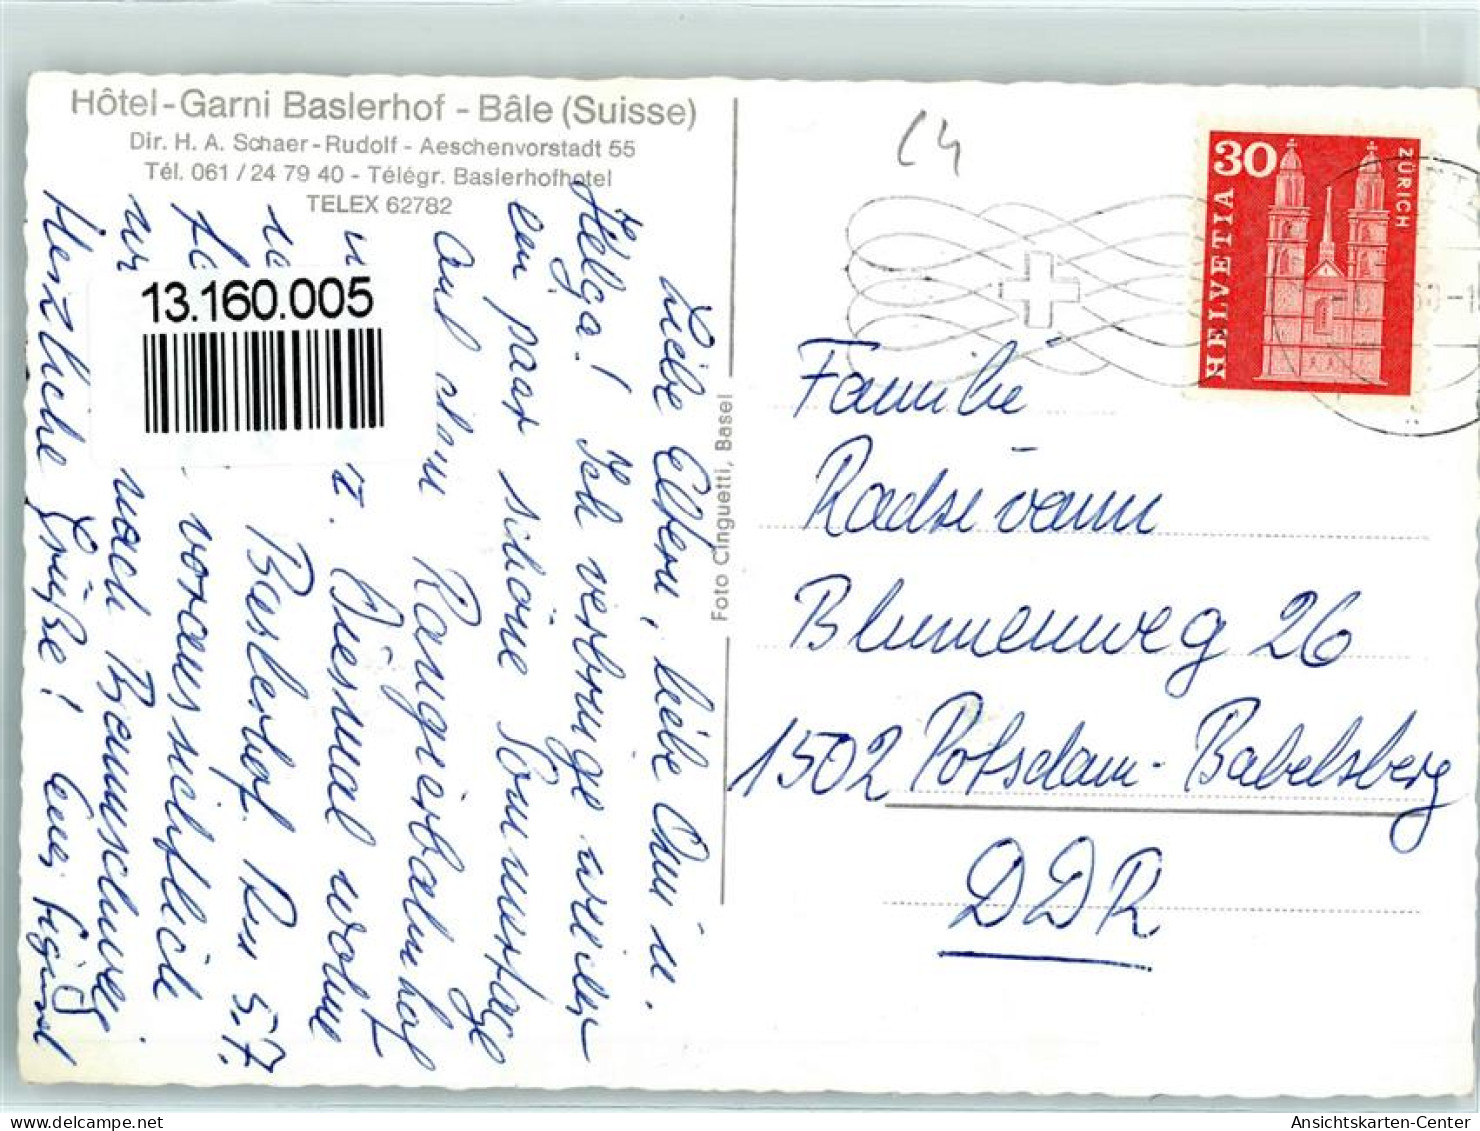 Hôtel-Garni Baslerhof - Bâle (Suisse)
Dir. H. A. Schaer-Rudolf - Aeschenvorstadt 55
Tél. 061 / 24 79 40 - Télégr. Baslerhofhotel
TELEX 62782
Liebe Eltern, liebe Omi u.
Helga! Ich verbringe wieder
ein paar schöne Sommertage
auf dem Rangierbahnhof
Diesmal wohne
Baslerhof. Am 5.7.
voraussichtlich
nach Braunschweig.
Herzliche Grüße! Euer Siegfried
13.160.005
Foto Cinguetti, Basel
C4
30
HELVETIA
ZÜRICH
Familie
Radsivann
Blumenweg 26
1502 Potsdam-Babelsberg
DDR
13160005.jpg
Ansichtskarten-Center